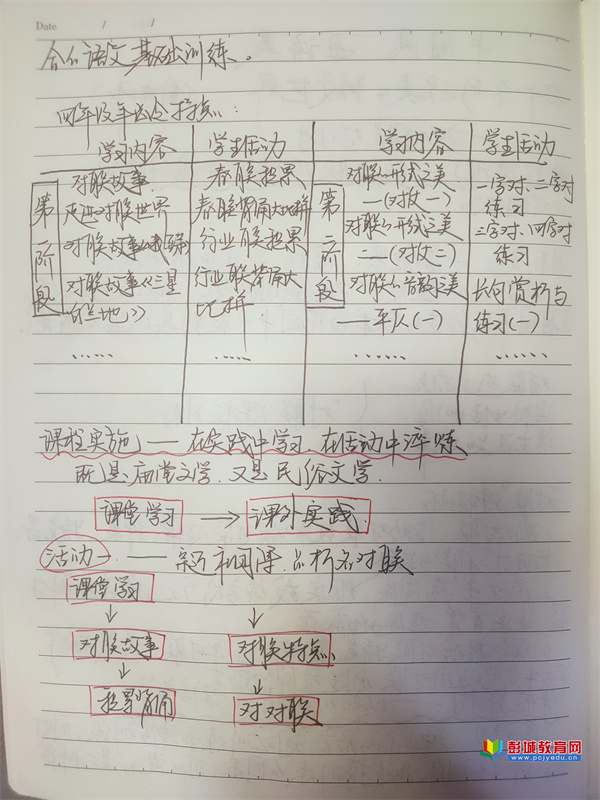 Date / /
语文基础训练。
四年级年段特点:
学习内容 学生活动 学习内容 学生活动
第一阶段
对联故事
走进对联世界
对联故事
对联故事《兰星
春联积累
春联背诵大比拼
行业联积累
行业联背诵大
比拼
……
第二阶段
对联的形式之美
—(对仗一)
对联的形式之美
——(对仗二)
对联的音韵之美
——平仄(一)
……
一字对、二字对
练习
三字对、四字对
练习
长句赏析与
练习(一)
……
课程实施 —— 在实践中学习 在活动中淬炼
既是庙堂文学,又是民俗文学.
课堂学习 → 课外实践
活动一 ——
课堂学习
↓ ↓
对联故事 对联特点
↓ ↓
积累背诵 对对联
彭城教育网
www.pcjyedu.cn